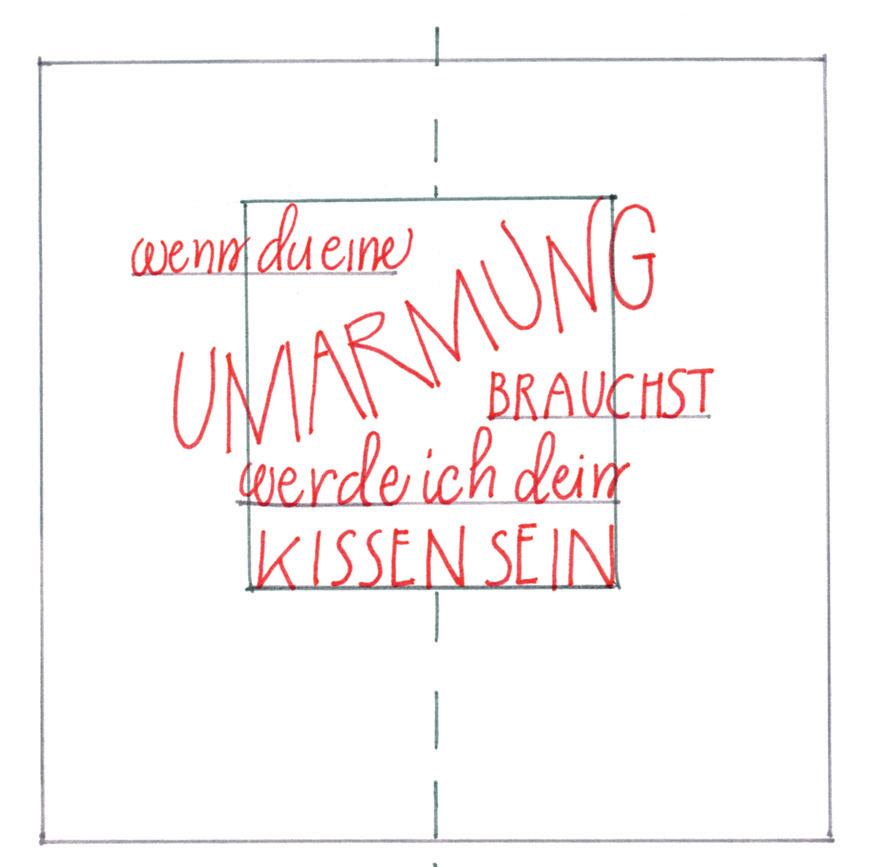 wenn du eine
UMARMUNG
BRAUCHST
werde ich dein
KISSEN SEIN